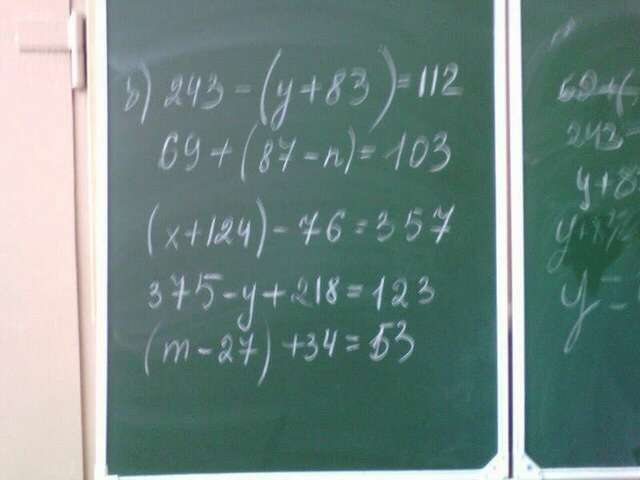 б) 243 - (y + 83) = 112
69 + (87 - n) = 103
(x + 124) - 76 = 357
375 - y + 218 = 123
(m - 27) + 34 = 53
243 -
y + 8
y =